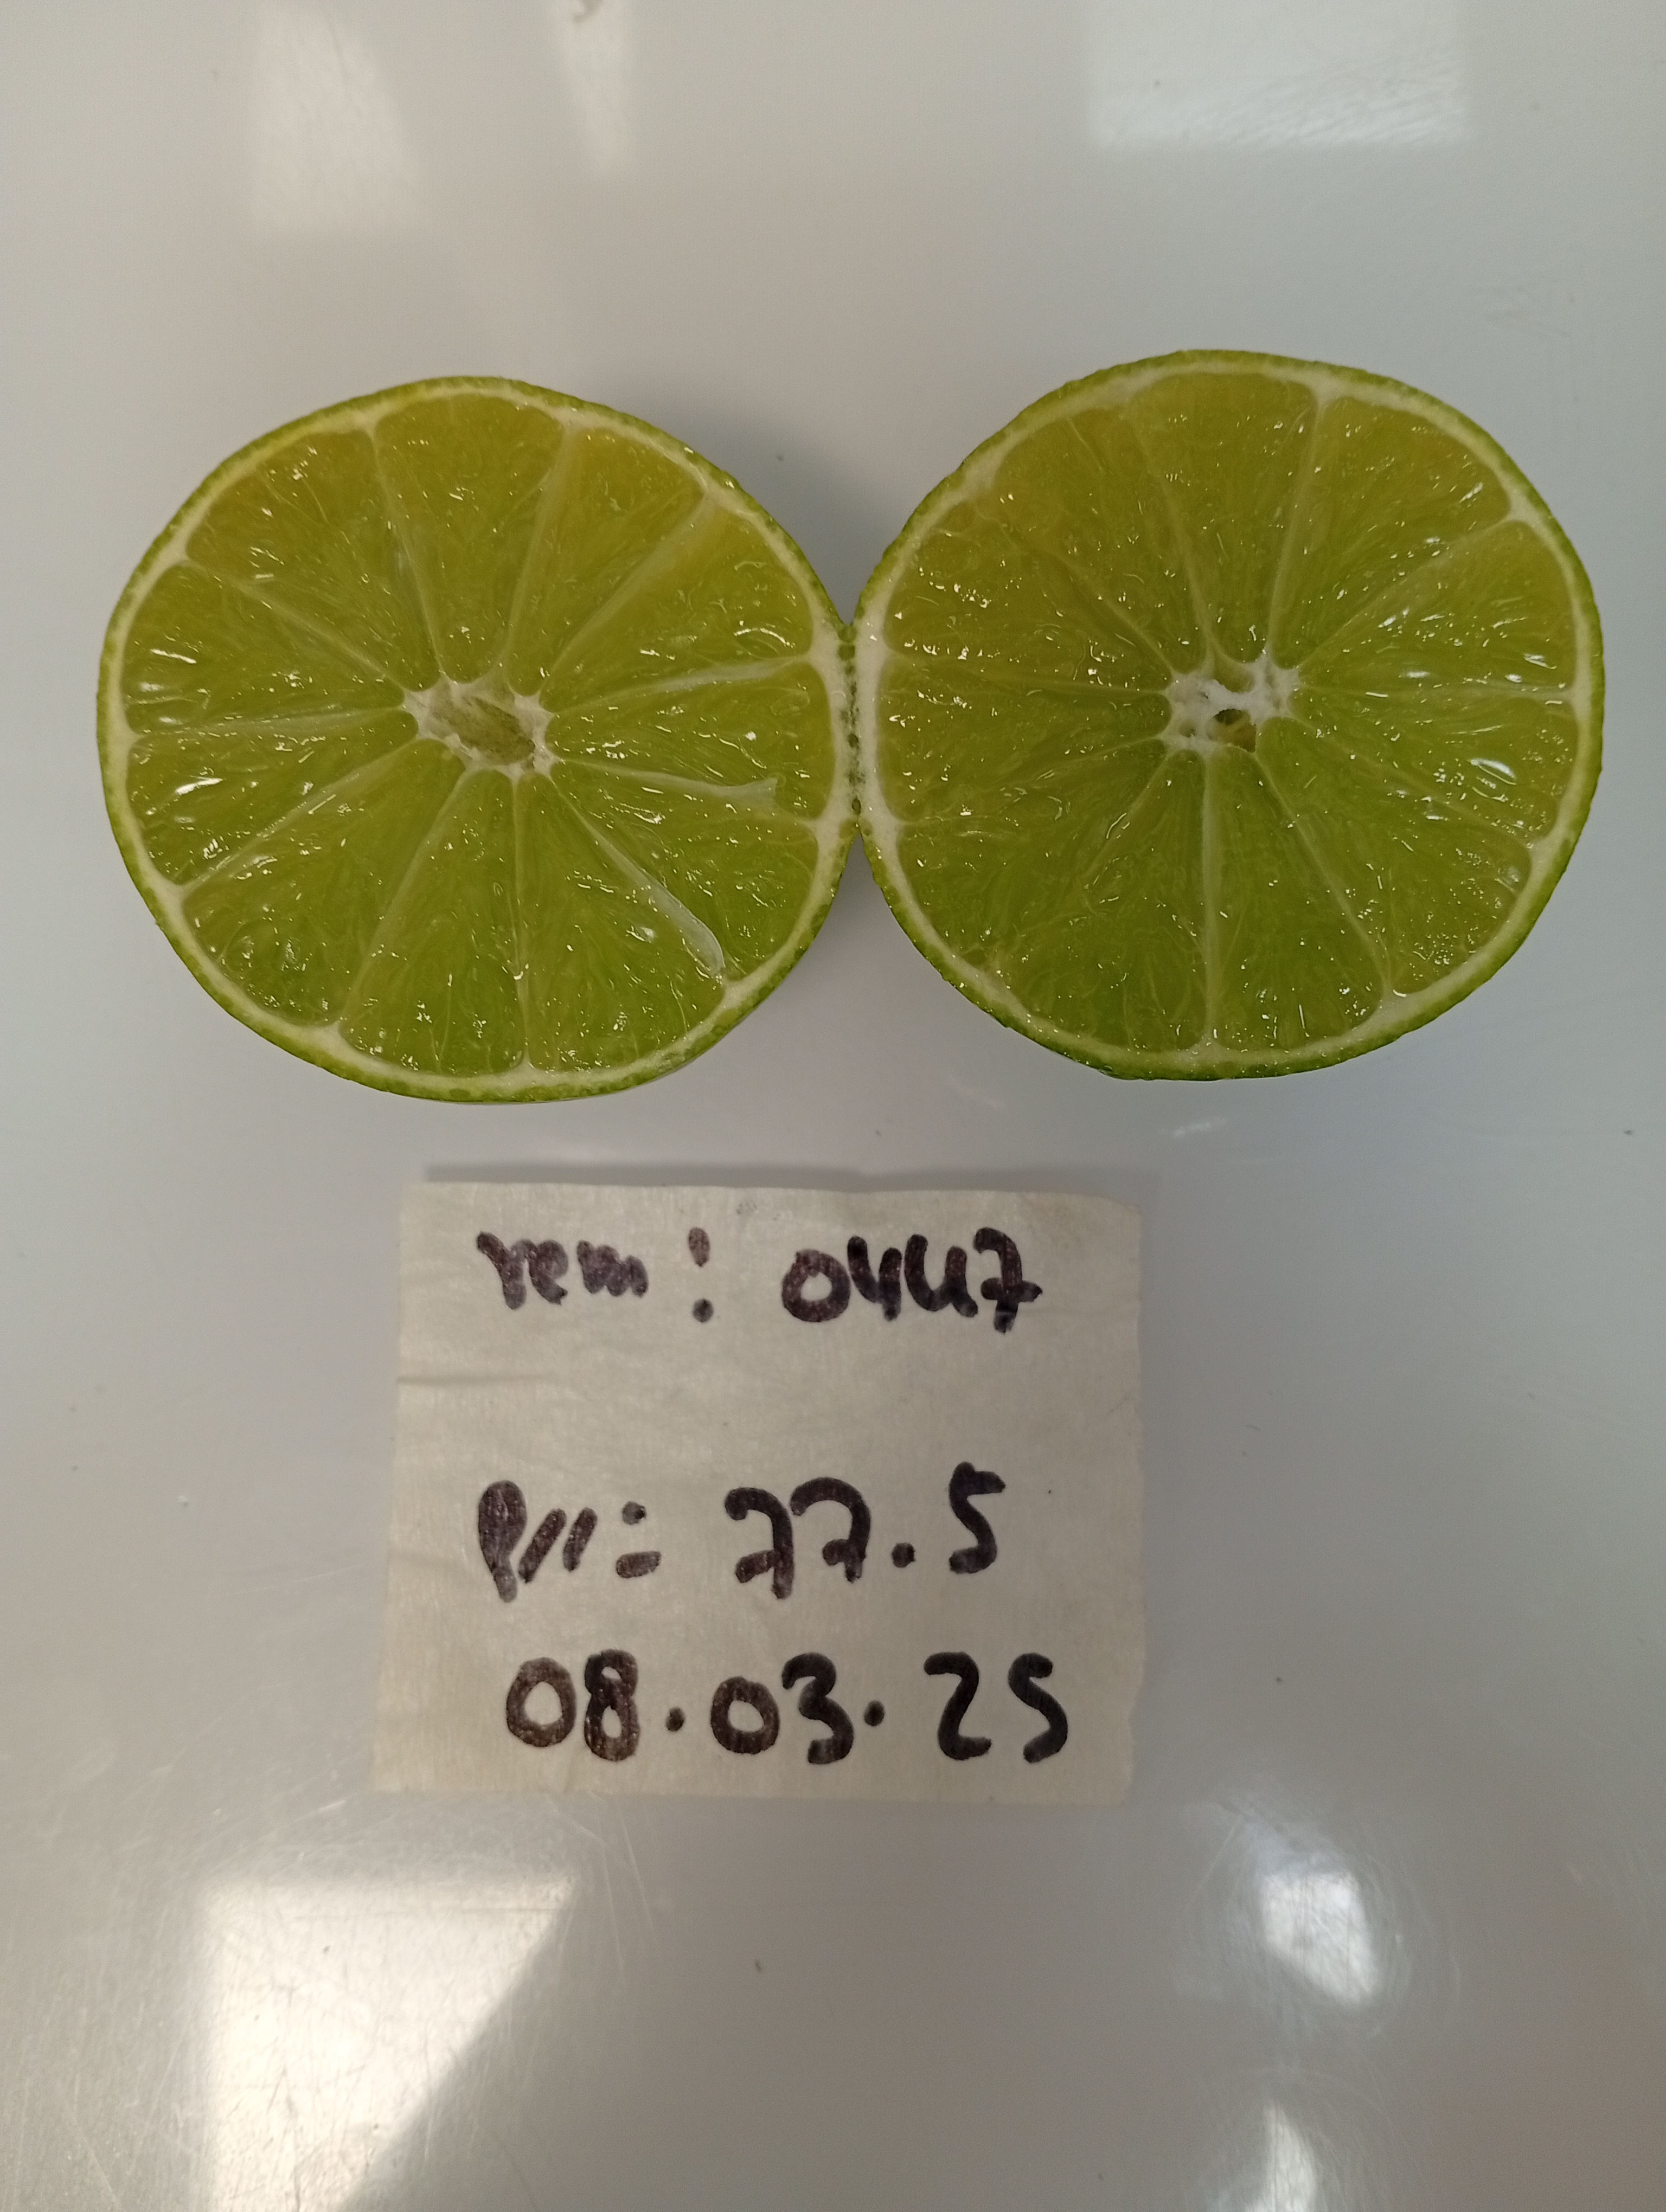 rem: 0447
P11: 77.5
08.03.25